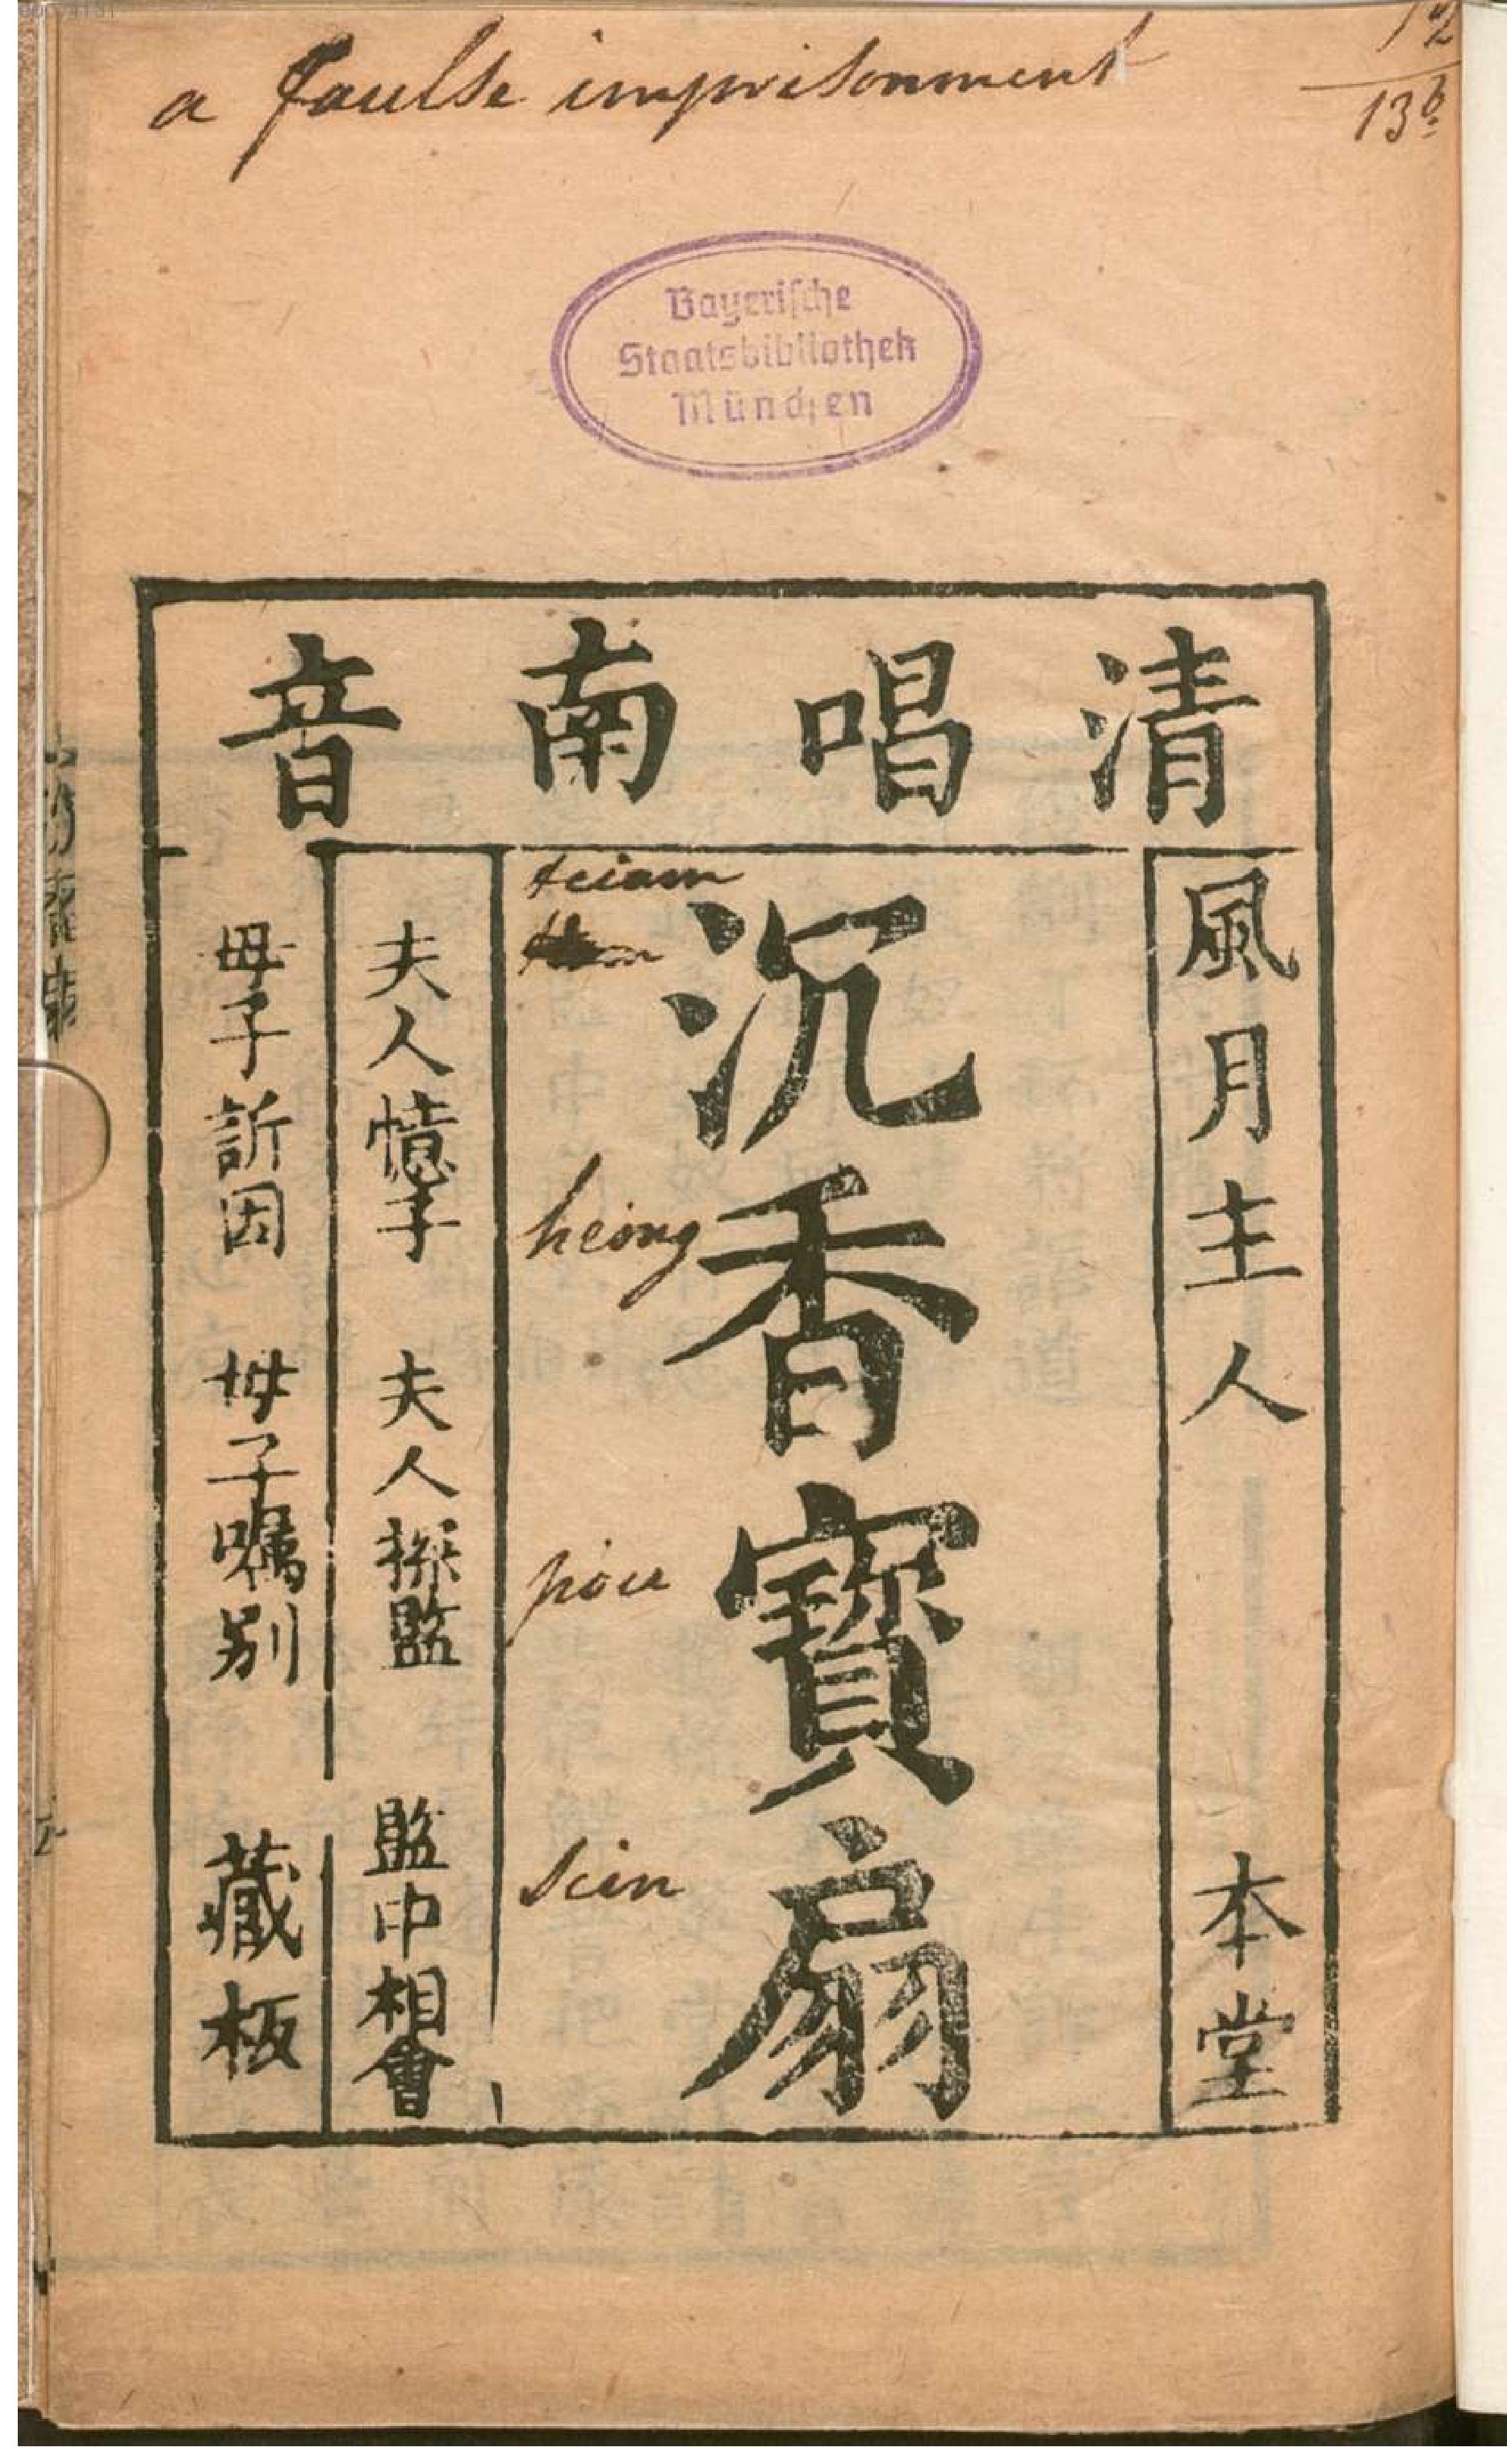 a faulse imprisonment
13 6
Bayerische
Staatsbibliothek
München
清唱南音
風月主人 本堂
沉香寶扇
tciam
heong
pòu
scin
夫人憶子 夫人探監 監中相會
母子訴因 母子囑別 藏板